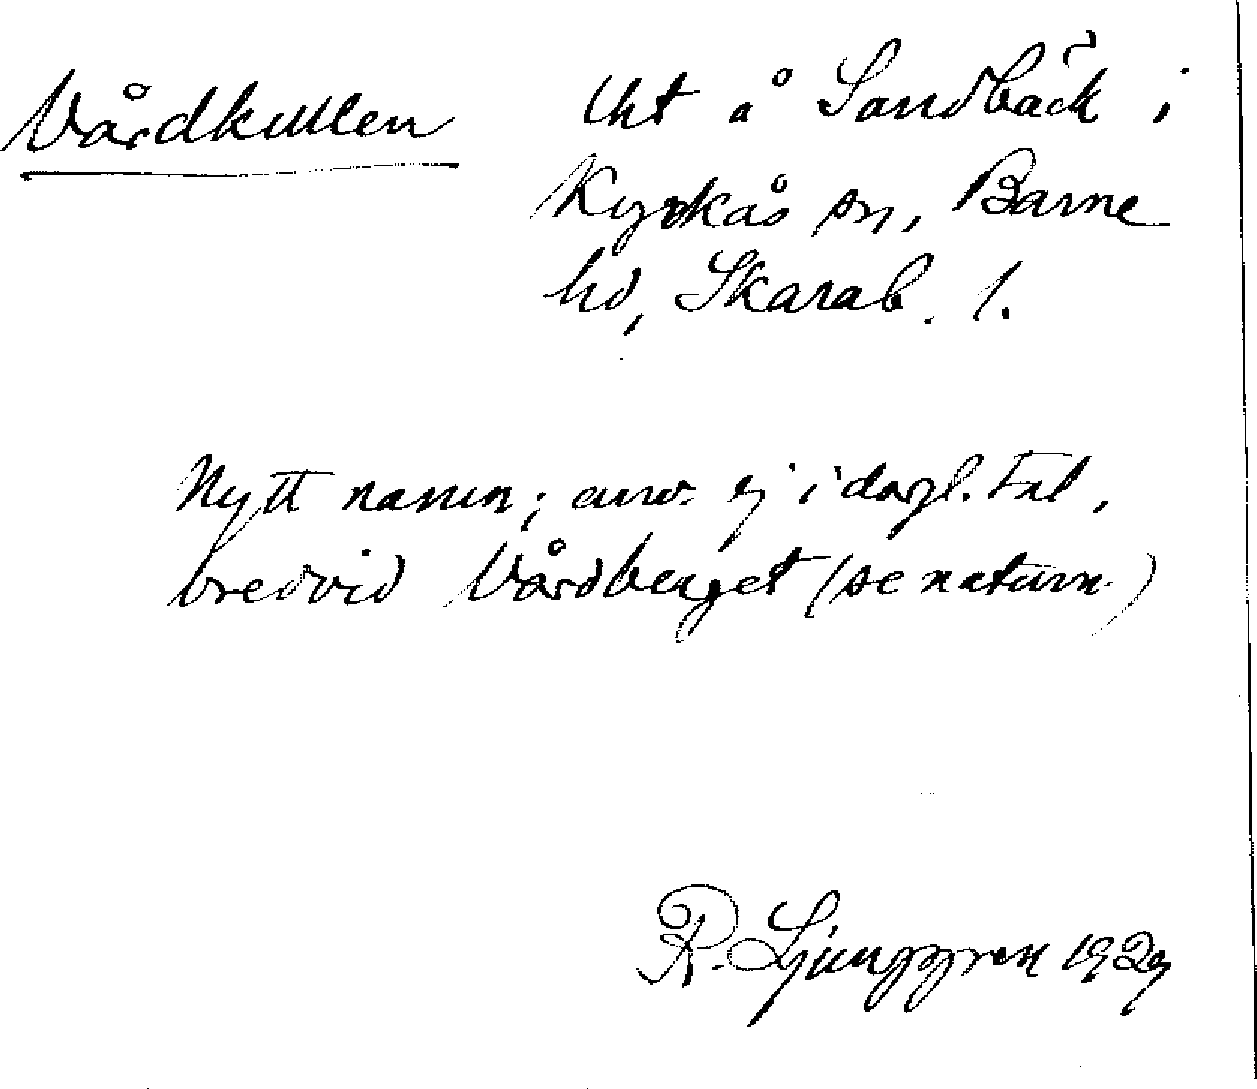 Vårdkullen
Lht å Sandbäck i
Kyrkås sn, Barne
hd, Skarab. l.
Nytt namn; anv. ej i dagl. tal,
bredvid Vårdberget (se naturn.)
R. Ljunggren 1929